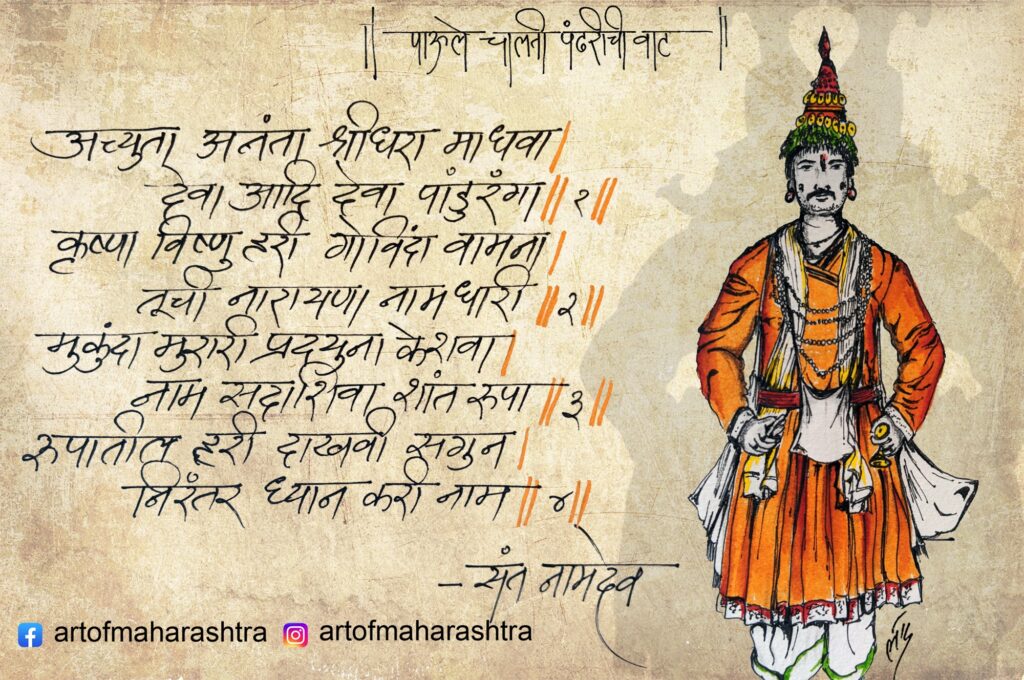 || पाऊले चालती पंढरीची वाट ||
अच्युता अनंता श्रीधरा माधवा |
देवा आदि देवा पांडुरंगा || १ ||
कृष्णा विष्णु हरी गोविंदा वामना |
तूची नारायणा नामधारी || २ ||
मुकुंदा मुरारी प्रद्युना केशवा |
नाम सदाशिवा शांत रुपा || ३ ||
रुपातील हरी दाखवी सगुन |
निरंतर ध्यान करी नाम || ४ ||
- संत नामदेव
artofmaharashtra artofmaharashtra